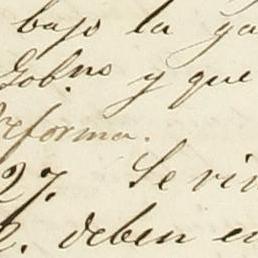 bajo la ga
Gobno y que
reforma.
27. Se vin
2. deben en